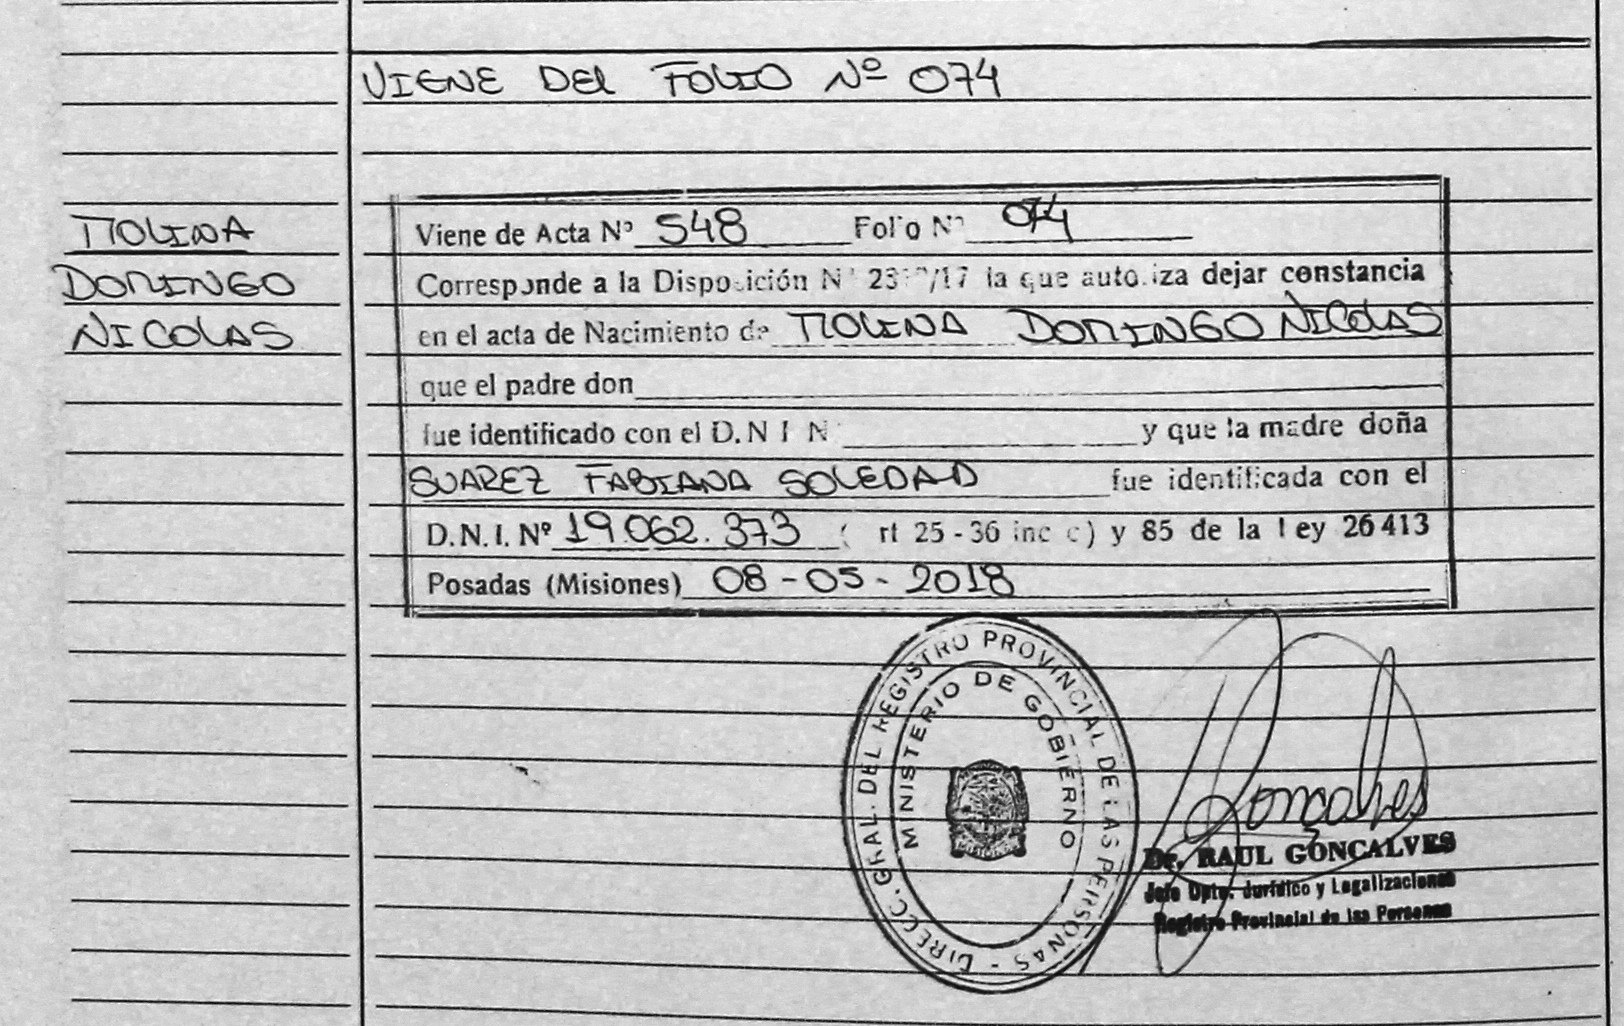 VIENE DEL FOLIO Nº 074
MOLINA
DOMINGO
NICOLAS
Viene de Acta Nº 548 Folio Nº 074
Corresponde a la Disposición Nº la que autoriza dejar constancia
en el acta de Nacimiento de MOLINA DOMINGO NICOLAS
que el padre don
fue identificado con el D.N.I. Nº y que la madre doña
SUAREZ FABIANA SOLEDAD fue identificada con el
D.N.I. Nº 19.062.373 (Art 25-36 inc c) y 85 de la Ley 26413
Posadas (Misiones) 08-05-2018
DIRECC. GRAL. DEL REGISTRO PROVINCIAL DE LAS PERSONAS -
MINISTERIO DE GOBIERNO
MISIONES
Goncalves
Dr. RAUL GONCALVES
Jefe Dpto. Jurídico y Legalizaciones
Registro Provincial de las Personas